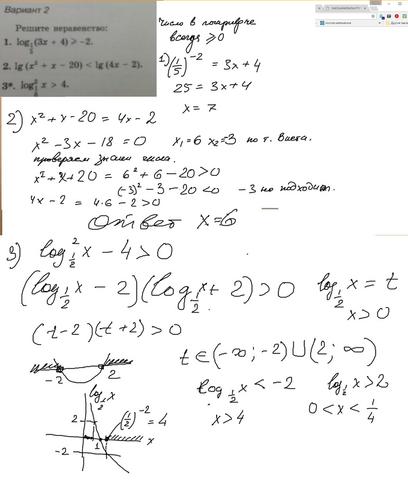 Вариант 2
Решите неравенство:
1. log_{1/5} (3x + 4) ⩾ -2.
2. lg (x² + x - 20) < lg (4x - 2).
3*. log²_{1/2} x > 4.
Число в логарифме
всегда ⩾ 0
1) (1/5)^{-2} = 3x + 4
25 = 3x + 4
x = 7
2) x² + x - 20 = 4x - 2
x² - 3x - 18 = 0 x₁=6 x₂=-3 по т. Виета.
проверяем знаки
x² + x + 20 = 6² + 6 - 20 > 0
(-3)² - 3 - 20 < 0 -3 не подходит.
4x - 2 = 4·6 - 2 > 0
Ответ x=6
3) log²_{1/2} x - 4 > 0
(log_{1/2} x - 2)(log_{1/2} x + 2) > 0 log_{1/2} x = t
x > 0
(t-2)(t+2) > 0
t ∈ (-∞; -2) ∪ (2; ∞)
-2 2
log_{1/2} x < -2 log_{1/2} x > 2
x > 4 0 < x < 1/4
log_{1/2} x
2 (1/2)^{-2} = 4
1 x
-2